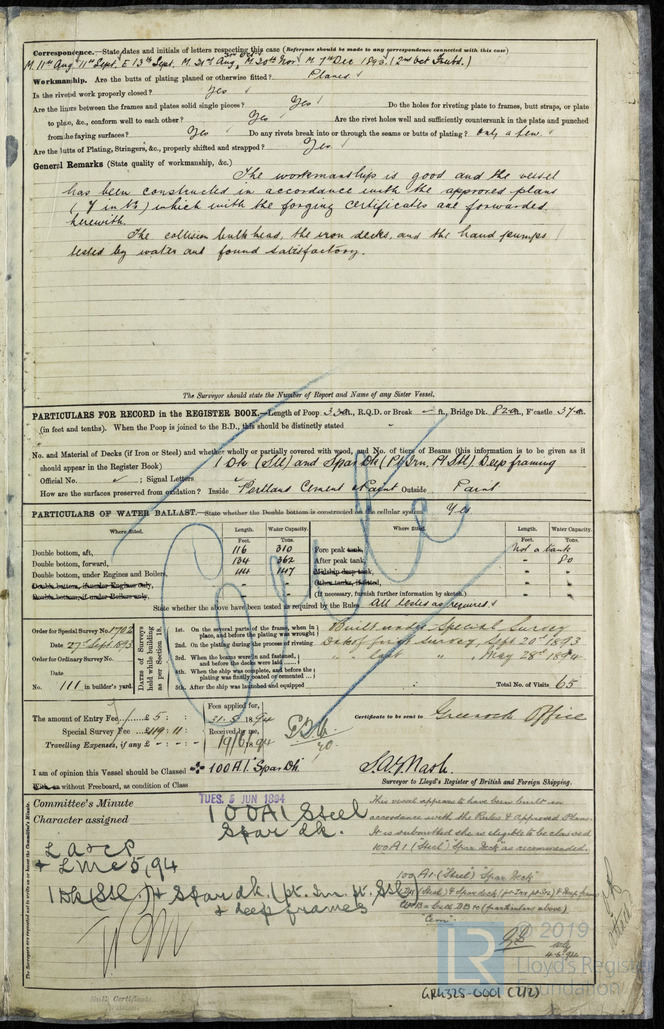 Correspondence.—State dates and initials of letters respecting this case (Reference should be made to any correspondence connected with this case)
M. 11th Aug. 11th Sept. E 13th Sept. M. 31st Aug, M. 30th Nov. M. 7th Dec 1893. (2nd Oct
Workmanship. Are the butts of plating planed or otherwise fitted? Planed
Is the riveted work properly closed? Yes
Are the liners between the frames and plates solid single pieces? Yes Do the holes for riveting plate to frames, butt straps, or plate
to plate, &c., conform well to each other? Yes Are the rivet holes well and sufficiently countersunk in the plate and punched
from the faying surfaces? Yes Do any rivets break into or through the seams or butts of plating? only a few.
Are the butts of Plating, Stringers, &c., properly shifted and strapped? Yes.
General Remarks (State quality of workmanship, &c.)
The workmanship is good and the vessel
has been constructed in accordance with the approved plans
(7 in No) which with the forging certificates are forwarded
herewith.
The collision bulkhead, the iron decks, and the hand pumps
tested by water and found satisfactory.
The Surveyor should state the Number of Report and Name of any Sister Vessel.
PARTICULARS FOR RECORD in the REGISTER BOOK.—Length of Poop 33 ft., R.Q.D. or Break – ft., Bridge Dk. 82 ft., F'castle 37 ft.
(in feet and tenths). When the Poop is joined to the B.D., this should be distinctly stated
No. and Material of Decks (if Iron or Steel) and whether wholly or partially covered with wood, and No. of tiers of Beams (this information is to be given as it
should appear in the Register Book) 1 Dk (Stl) and Spar Dk (Pt Irn, Pt Stl). Deep framing
Official No. ; Signal Letters
How are the surfaces preserved from oxidation? Inside Portland Cement & Paint Outside Paint
PARTICULARS OF WATER BALLAST.—State whether the Double bottom is constructed on the cellular system Yes
Where fitted. Length. Water Capacity. Where fitted. Length. Water Capacity.
Feet. Tons. Feet. Tons.
Double bottom, aft, 116 310 Fore peak tank, Not a tank
Double bottom, forward, 134 362 After peak tank, – 80
Double bottom, under Engines and Boilers, 44 147 Midship deep tank,
Double bottom, if under Engines only, – – Other tanks, if fitted,
Double bottom, if under Boilers only, – – (If necessary, furnish further information by sketch.)
State whether the above have been tested as required by the Rules All tested as required
Order for Special Survey No. 1702
Date 27th Sept. 1893
Order for Ordinary Survey No.
Date
No. 111 in builder's yard.
DATES of Surveys held while building as per Section 18.
1st. On the several parts of the frame, when in place, and before the plating was wrought
2nd. On the plating during the process of riveting
3rd. When the beams were in and fastened, and before the decks were laid
4th. When the ship was complete, and before the plating was finally coated or cemented
5th. After the ship was launched and equipped
Built under Special Survey
Date of first survey, Sept 20th 1893
" last " , May 28th 1894
Total No. of Visits 65
The amount of Entry Fee £5 : Fees applied for, 31.5.1894
Special Survey Fee £119 : 11 : Received by me,
Travelling Expenses, if any £ – : – : – 19/6/1894
Certificate to be sent to Greenock Office
I am of opinion this Vessel should be Classed ✠ 100A1 "Spar Dk"
With or without Freeboard, as condition of Class
Surveyor to Lloyd's Register of British and Foreign Shipping.
Committee's Minute TUES. 5 JUN 1894
Character assigned 100A1 Steel
Spar dk.
L A & C P
+ L M C 5,94
1 Dk (Stl.) & Spar dk. (pt. Irn. pt. Stl.)
& deep frames
This vessel appears to have been built in
accordance with the Rules & Approved Plans.
It is submitted she is eligible to be classed
100A1 ("Steel") "Spar Deck" as recommended.
100A1 ("Steel") "Spar Deck"
"Cem".
© 2019
LR
Lloyd's Register
Foundation
GRK325-0001 (2/2)